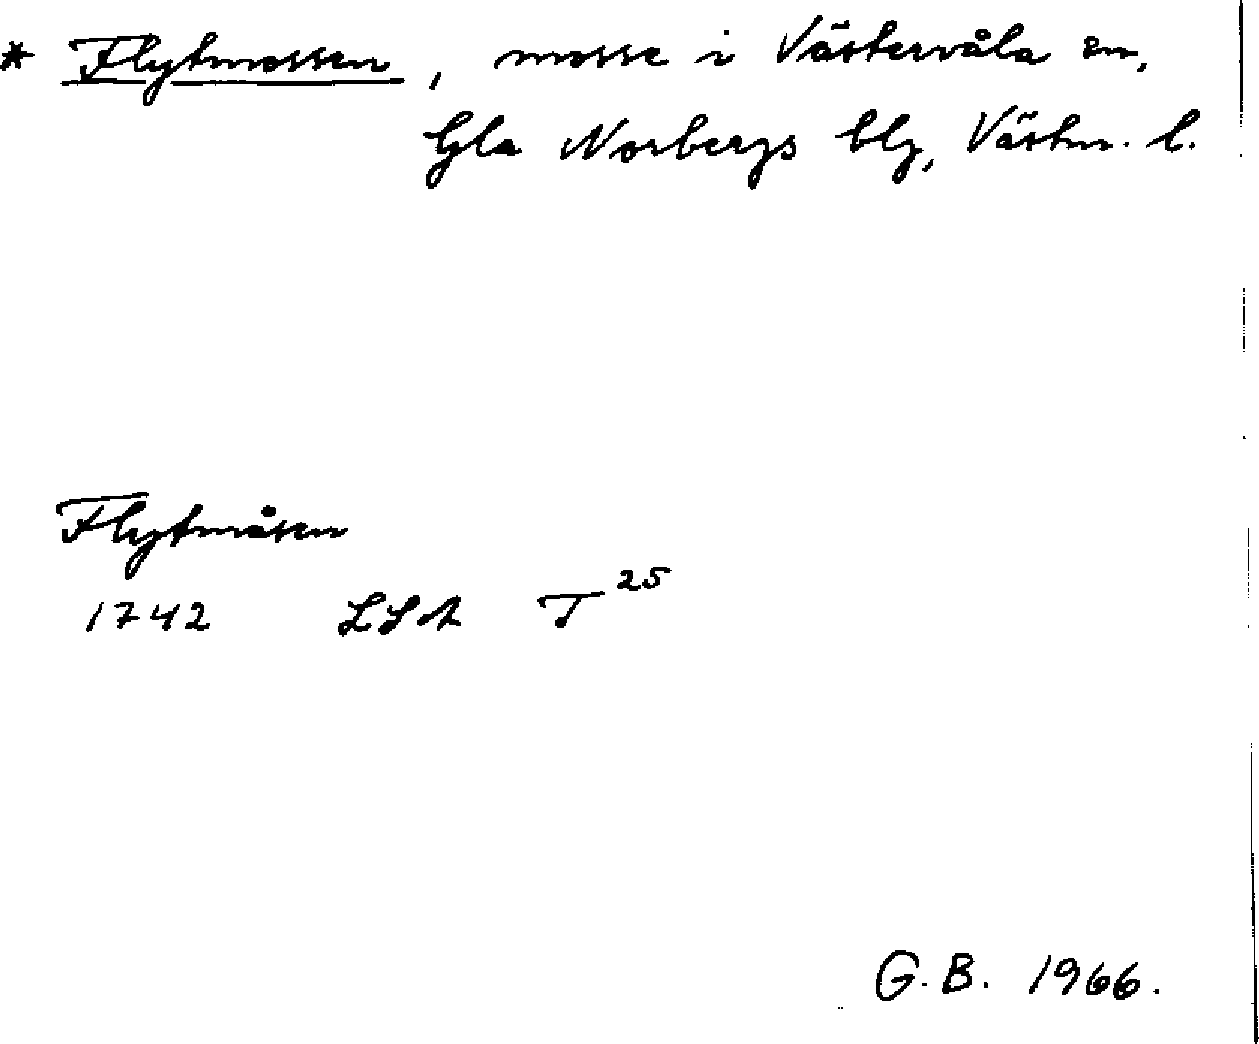 * Flytmossen, mosse i Västervåla sn,
Gla Norbergs blg, Västm. l.
Flytmåsen
1742 LSA T 25
G.B. 1966.